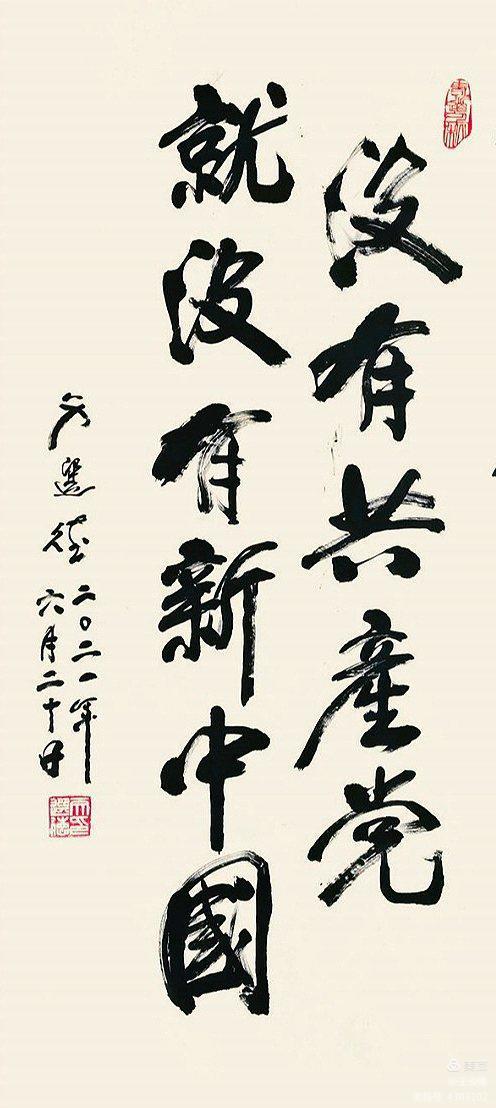 没有共產党
就没有新中國
選德
二〇二一年
六月二十日